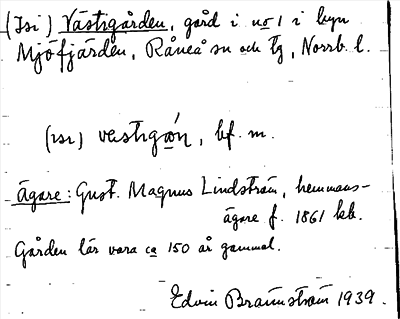 (Isi) Västrgården, gård i no 1 i byn
Mjöfjärden, Råneå sn och tg, Norrb. l.
vastrgǻn, bf. m.
ägare: Gust. Magnus Lindström, hemmans-
ägare f. 1861 kb.
Gården lär vara ca 150 år gammal.
Edvin Brännström 1939.